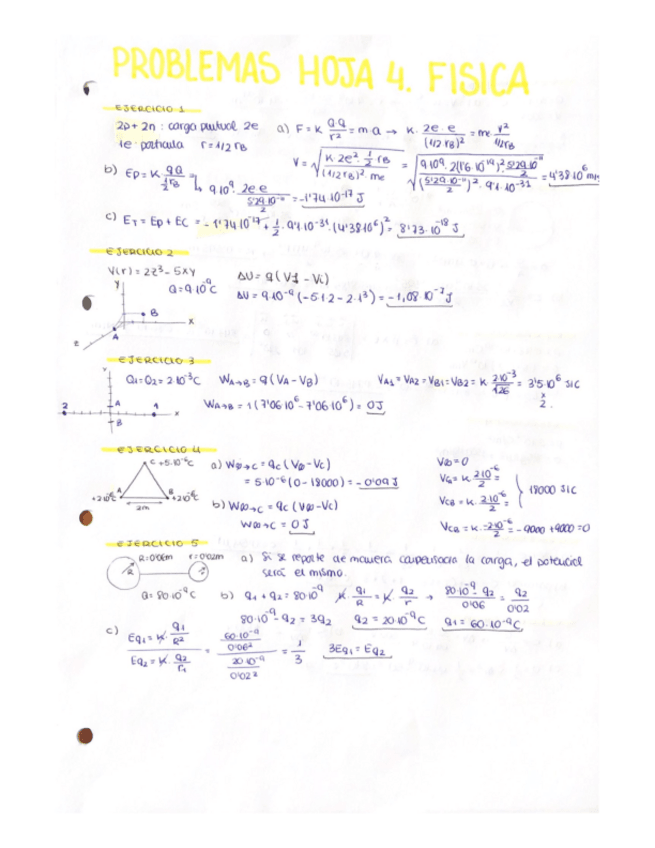 PROBLEMAS HOJA 4. FISICA
EJERCICIO 1
2p + 2n : carga puntual 2e
1e⁻ partícula r = 1/2 rB
a) F = K Q·Q / r² = m·a → K · 2e·e / (1/2 rB)² = me · v² / 1/2rB
v = √(K·2e²·1/2 rB / (1/2 rB)²·me) = √(9·10⁹·2(1'6·10⁻¹⁹)²·5'29·10⁻¹¹/2 / (5'29·10⁻¹¹/2)²·9'1·10⁻³¹) = 4'38·10⁶ m/s
b) Ep = K · qQ / 1/2 rB → 9·10⁹ · 2e·e / 5'29·10⁻¹¹/2 = -1'74·10⁻¹⁷ J
c) ET = Ep + EC = -1'74·10⁻¹⁷ + 1/2 · 9'1·10⁻³¹ · (4'38·10⁶)² = 8'73·10⁻¹⁸ J
EJERCICIO 2
V(r) = 2z³ - 5xy
Q = 9·10⁻⁹ C
ΔU = q (Vf - Vi)
ΔU = 9·10⁻⁹ (-5·1·2 - 2·1³) = -1,08·10⁻⁷ J
y
B
x
A
z
EJERCICIO 3
Q1 = Q2 = 2·10⁻³ C
WA→B = q (VA - VB)
VA1 = VA2 = VB1 = VB2 = K · 2·10⁻³ / √26 = 3'5·10⁶ J/C
x
2
WA→B = 1 (7'06·10⁶ - 7'06·10⁶) = 0J
2 A 1 x
B
EJERCICIO 4
C +5·10⁻⁶ C
A B
+2·10⁻⁶ C +2·10⁻⁶ C
2m
a) W∞→C = qc (V∞ - Vc)
= 5·10⁻⁶ (0 - 18000) = -0'09 J
b) W∞→C = qc (V∞ - Vc)
W∞→C = 0 J
V∞ = 0
= K · 2·10⁻⁶ / 2 =
VCB = K · 2·10⁻⁶ / 2 =
18000 J/C
VCB = K · -2·10⁻⁶ / 2 = -9000 + 9000 = 0
EJERCICIO 5
R = 0'06m r = 0'02m
R r
Q = 80·10⁻⁹ C
a) Si se reparte de manera la carga, el potencial
será el mismo.
b) q1 + q2 = 80·10⁻⁹ K · q1 / R = K · q2 / r → 80·10⁻⁹ - q2 / 0'06 = q2 / 0'02
80·10⁻⁹ - q2 = 3q2 q2 = 20·10⁻⁹ C q1 = 60·10⁻⁹ C
c) Eq1 = K · q1 / R² / Eq2 = K · q2 / r1 = 60·10⁻⁹ / 0'06² / 20·10⁻⁹ / 0'02² = 1/3 3Eq1 = Eq2